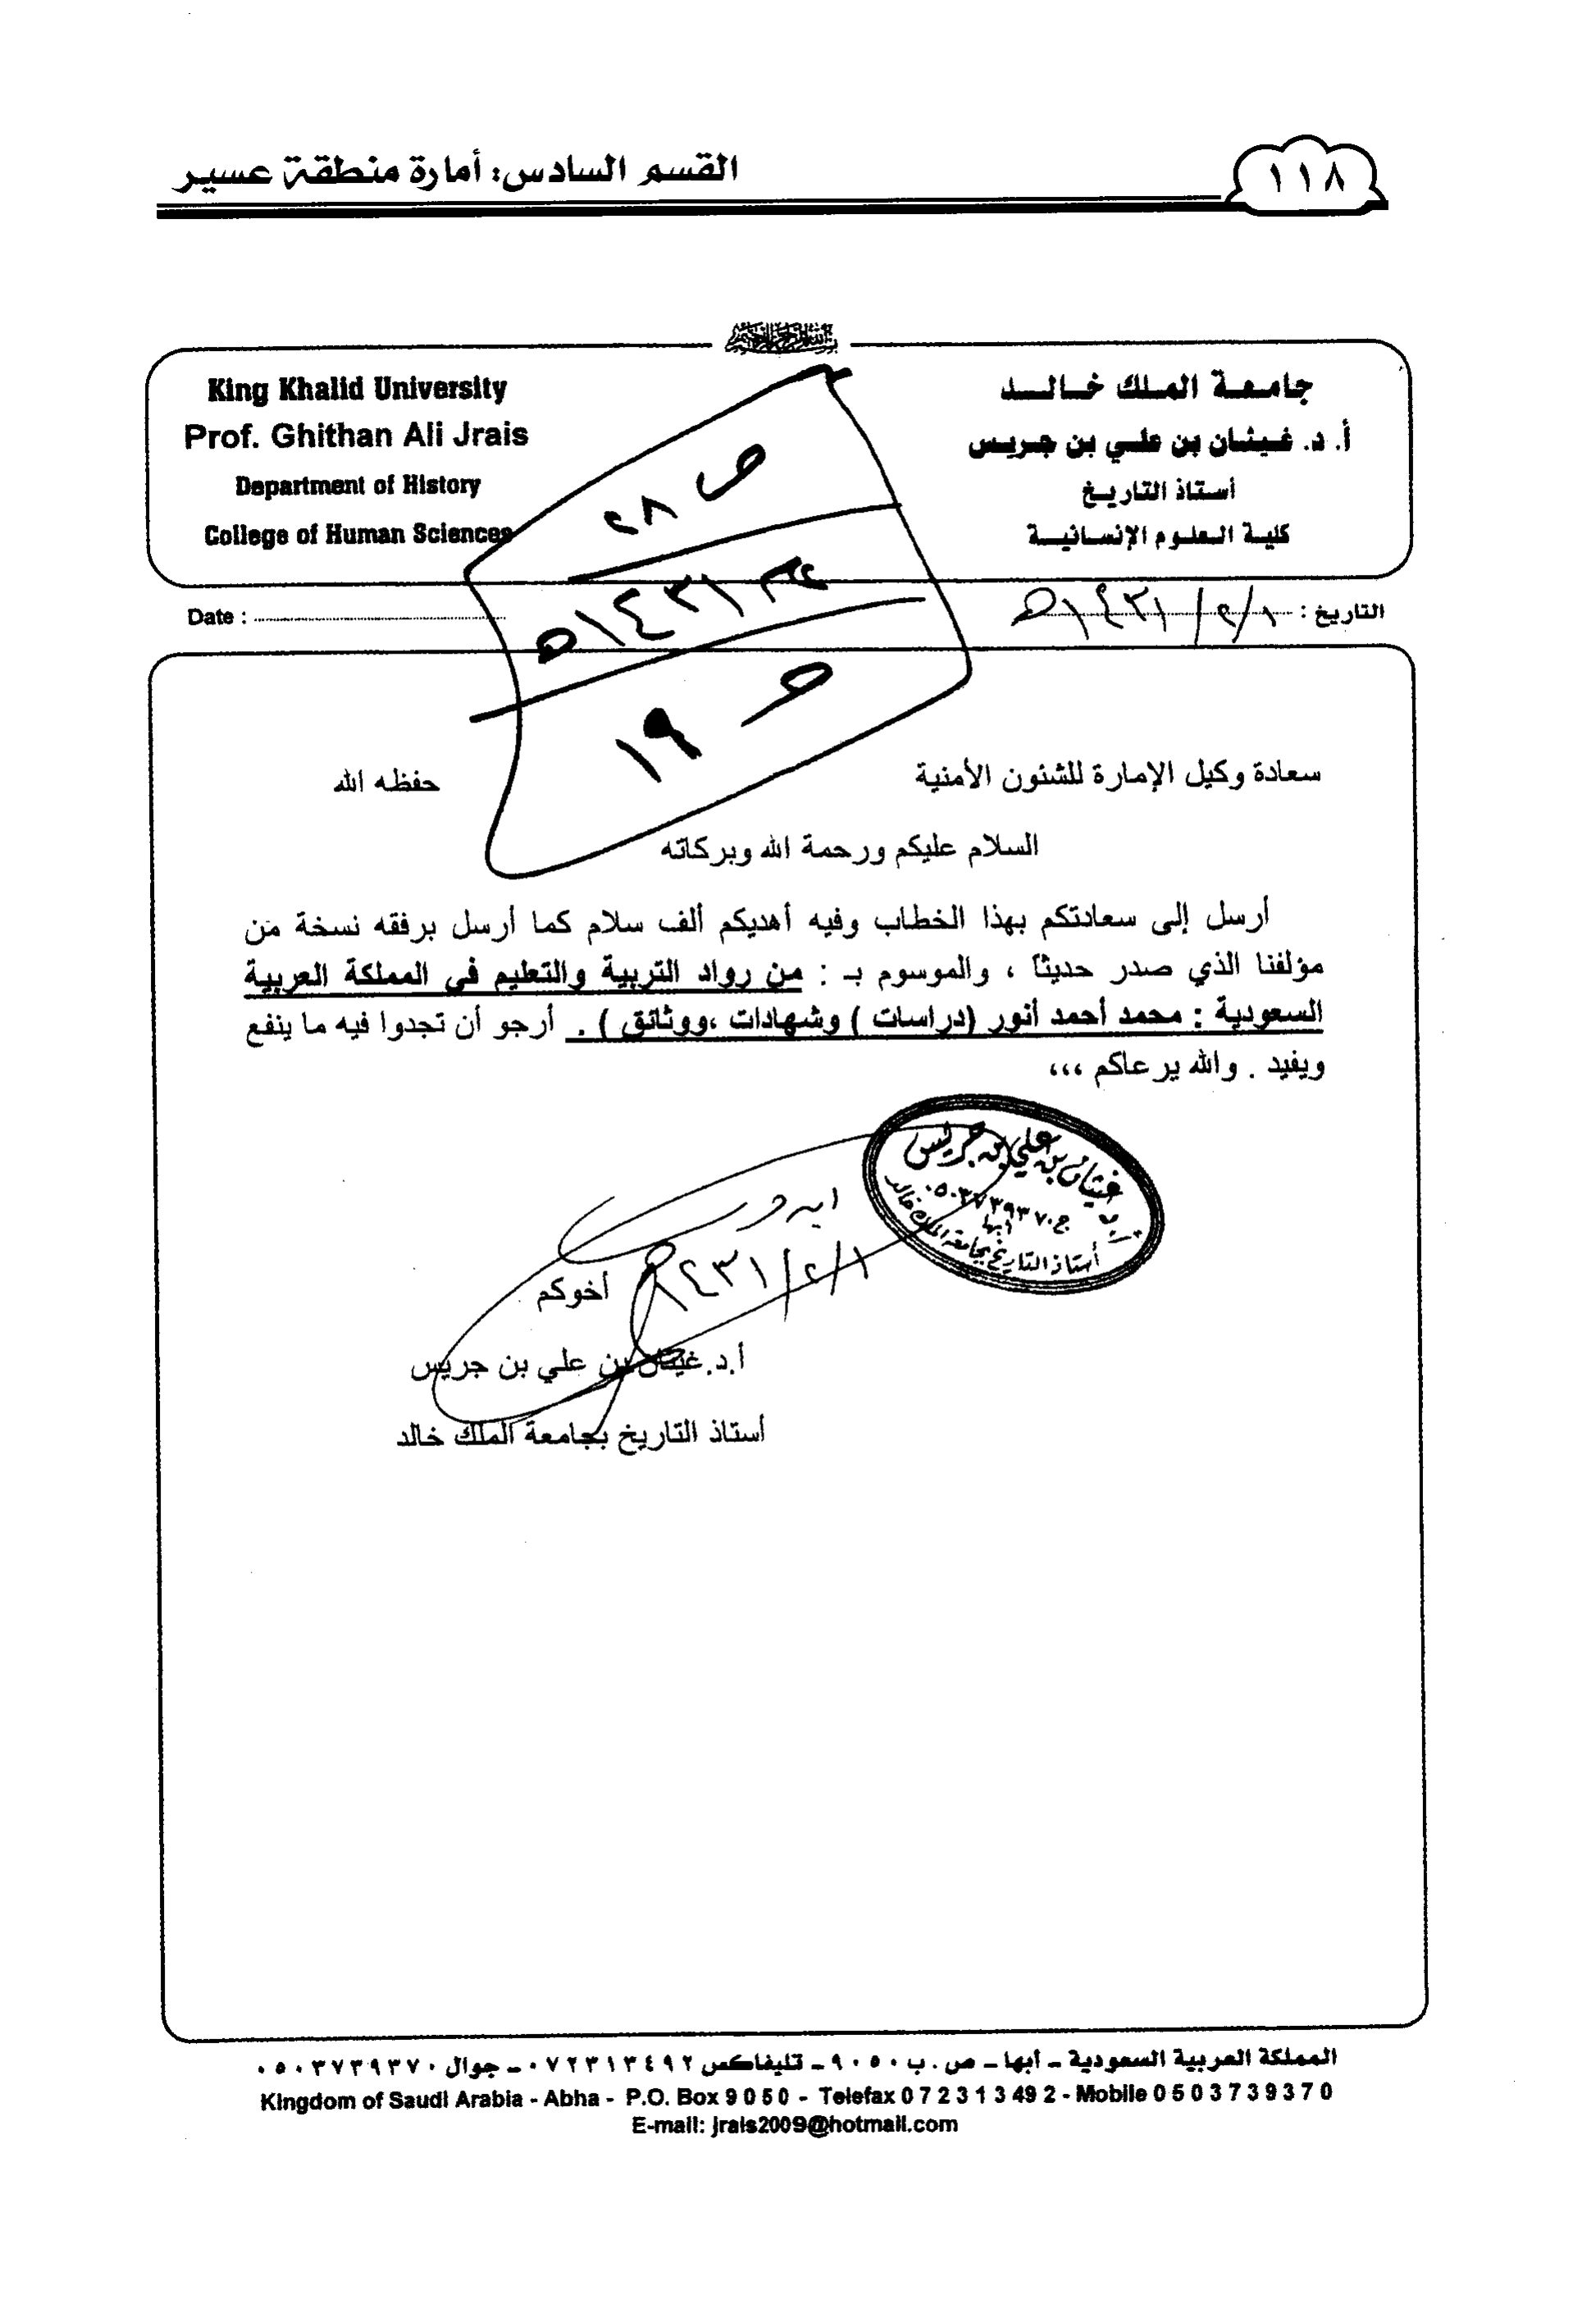 القسم السادس: أمارة منطقة عسير
١١٨
King Khalid University
Prof. Ghithan Ali Jrais
Department of History
College of Human Sciences
جامعة الملك خالد
أ. د. غيثان بن علي بن جريس
أستاذ التاريخ
كلية العلوم الإنسانية
ص ٢٨
١٤٣١هـ
١٩
Date :
التاريخ : ١/٢/١٤٣١هـ
سعادة وكيل الإمارة للشئون الأمنية حفظه الله
السلام عليكم ورحمة الله وبركاته
أرسل إلى سعادتكم بهذا الخطاب وفيه أهديكم ألف سلام كما أرسل برفقه نسخة من
مؤلفنا الذي صدر حديثاً ، والموسوم بـ : من رواد التربية والتعليم في المملكة العربية
السعودية : محمد أحمد أنور (دراسات ) وشهادات ،ووثائق ) . أرجو أن تجدوا فيه ما ينفع
ويفيد . والله يرعاكم ،،،
غيثان بن علي بن جريس
ج٠٥٠٣٧٣٩٣٧٠
أبها
أستاذ التاريخ بجامعة الملك خالد
١/٢/١٤٣١
أخوكم
أ.د. غيثان بن علي بن جريس
أستاذ التاريخ بجامعة الملك خالد
المملكة العربية السعودية – أبها – ص . ب ٩٠٥٠ – تليفاكس ٠٧٢٣١٣٤٩٢ – جوال ٠٥٠٣٧٣٩٣٧٠
Kingdom of Saudi Arabia - Abha - P.O. Box 9050 - Telefax 072313492 - Mobile 0503739370
E-mail: jrais2009@hotmail.com